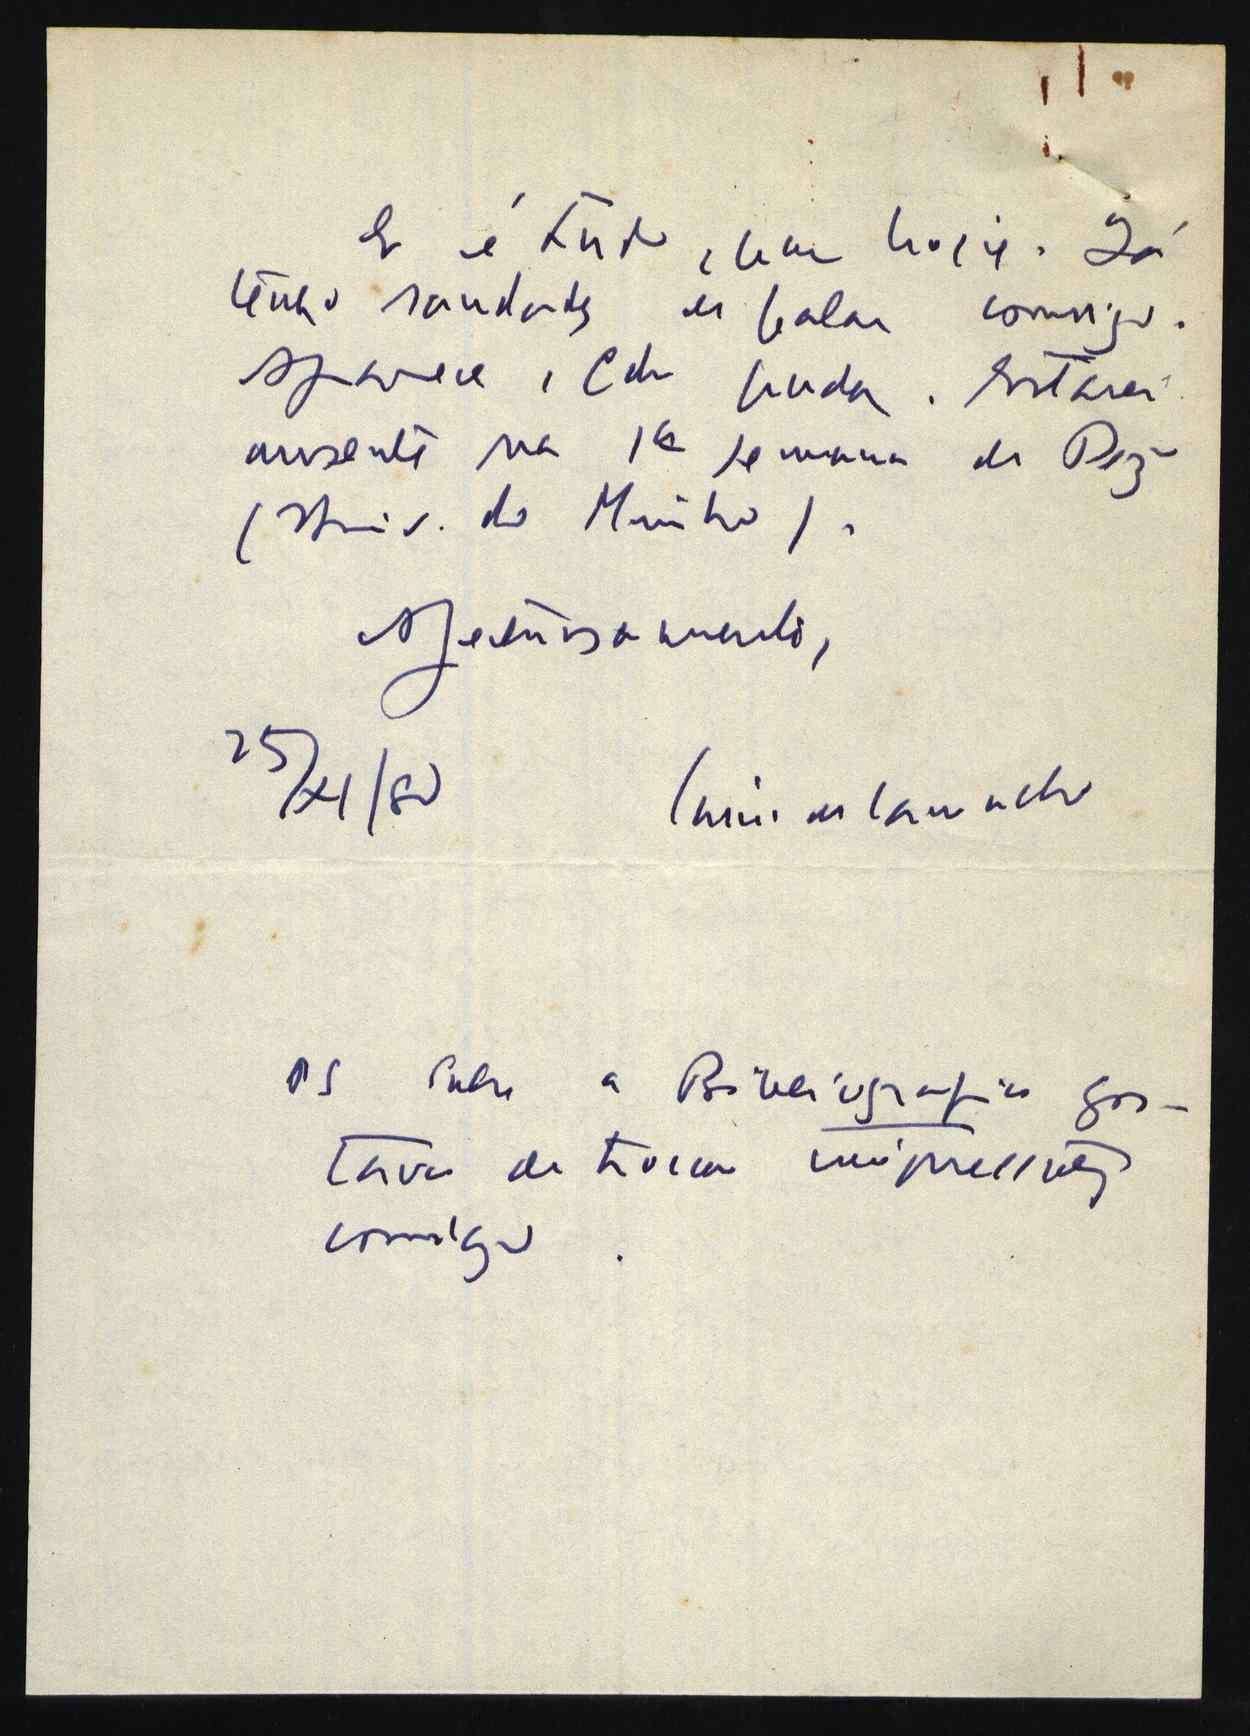 E é tudo, por hoje. Já
tenho saudades de falar consigo.
Apareça, qdo puder. Estarei
ausente na 1ª semana de Dez.
(Univ. do Minho).
Afectuosamente,
25/XI/80
PS Sobre a Bibliografia gos-
tava de trocar impressões
consigo.